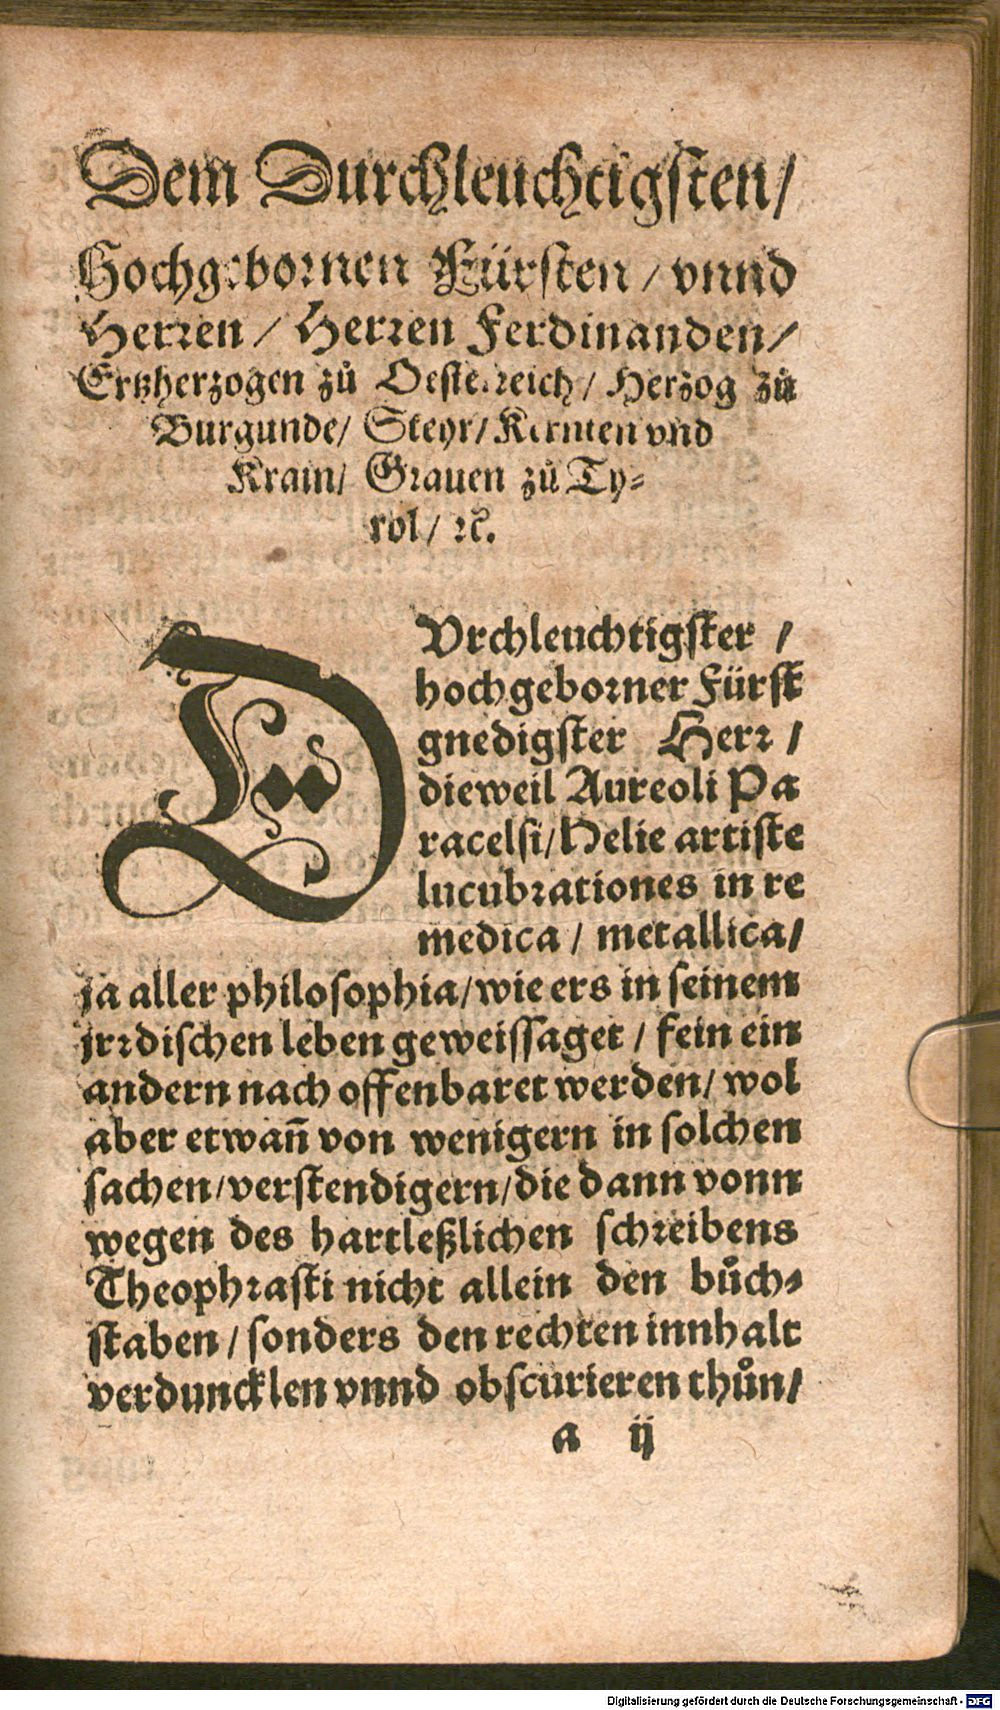 Dem Durchleuchtigsten/
Hochgebornen Fürsten / vnnd
Herren / Herren Ferdinanden/
Ertzherzogen zů Oesterreich/ Herzog zů
Burgunde/ Steyr/ Kernten vnd
Krain/ Grauen zů Ty⸗
rol/ ꝛc.
DVrchleuchtigster /
hochgeborner Fürst
gnedigster Herr /
dieweil Aureoli Pa
racelsi/Helie artiste
lucubrationes in re
medica / metallica/
ja aller philosophia/wie ers in seinem
jrrdischen leben geweissaget / fein ein
andern nach offenbaret werden/ wol
aber etwañ von wenigern in solchen
sachen/verstendigern/die dann vonn
wegen des hartleßlichen schreibens
Theophrasti nicht allein den bůch⸗
staben / sonders den rechten innhalt
verduncklen vnnd obscurieren thůn/
a ij
Digitalisierung gefördert durch die Deutsche Forschungsgemeinschaft - DFG